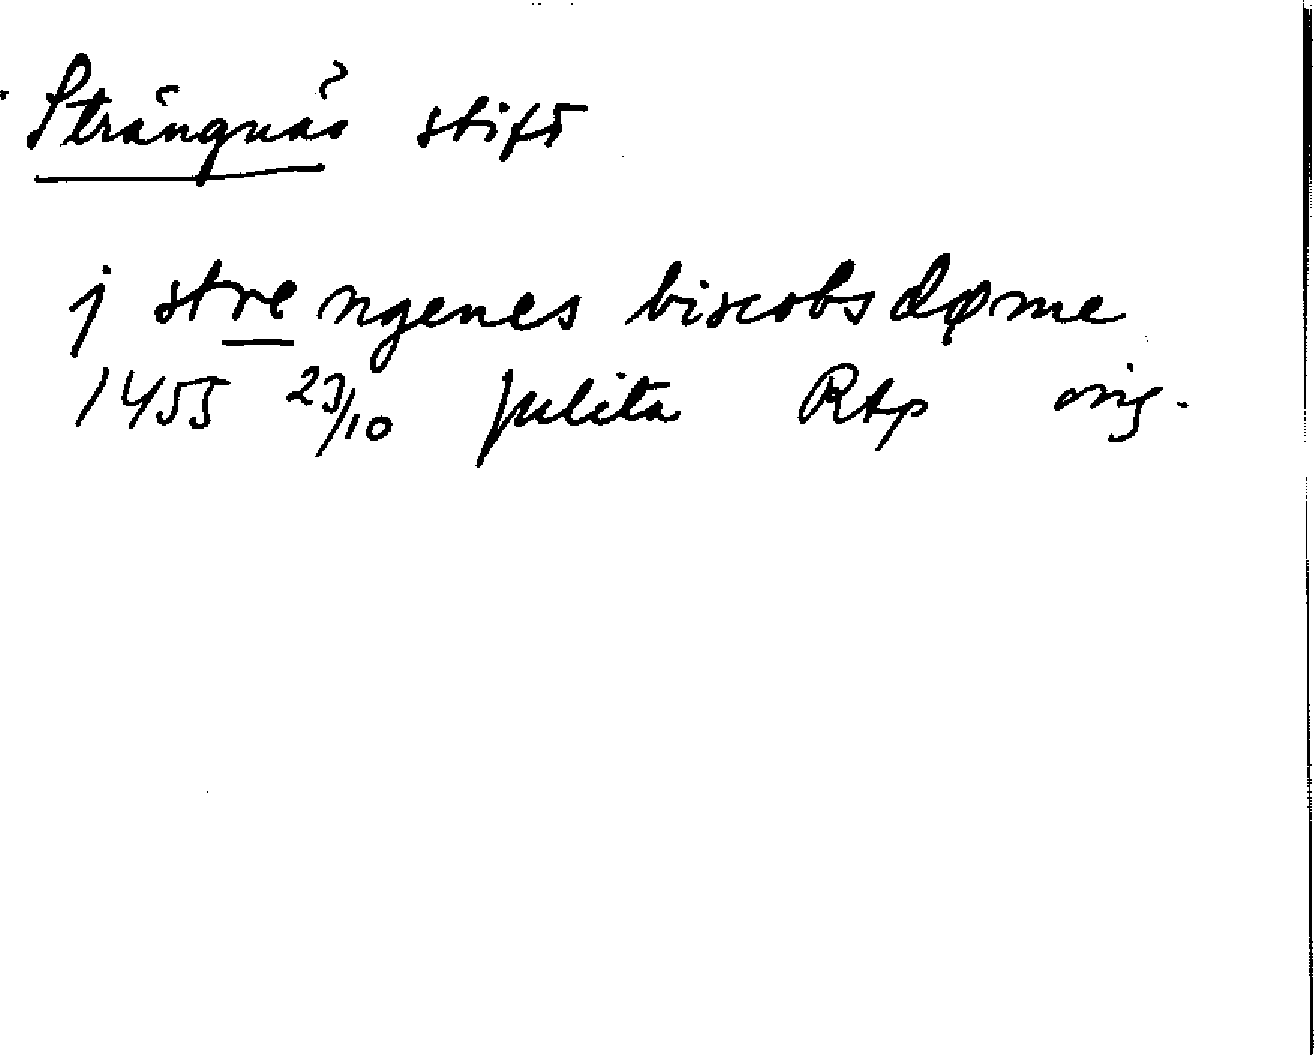 Strängnäs stift
j strengenes biscobsdøme
1455 23/10 Julita RAp orig.